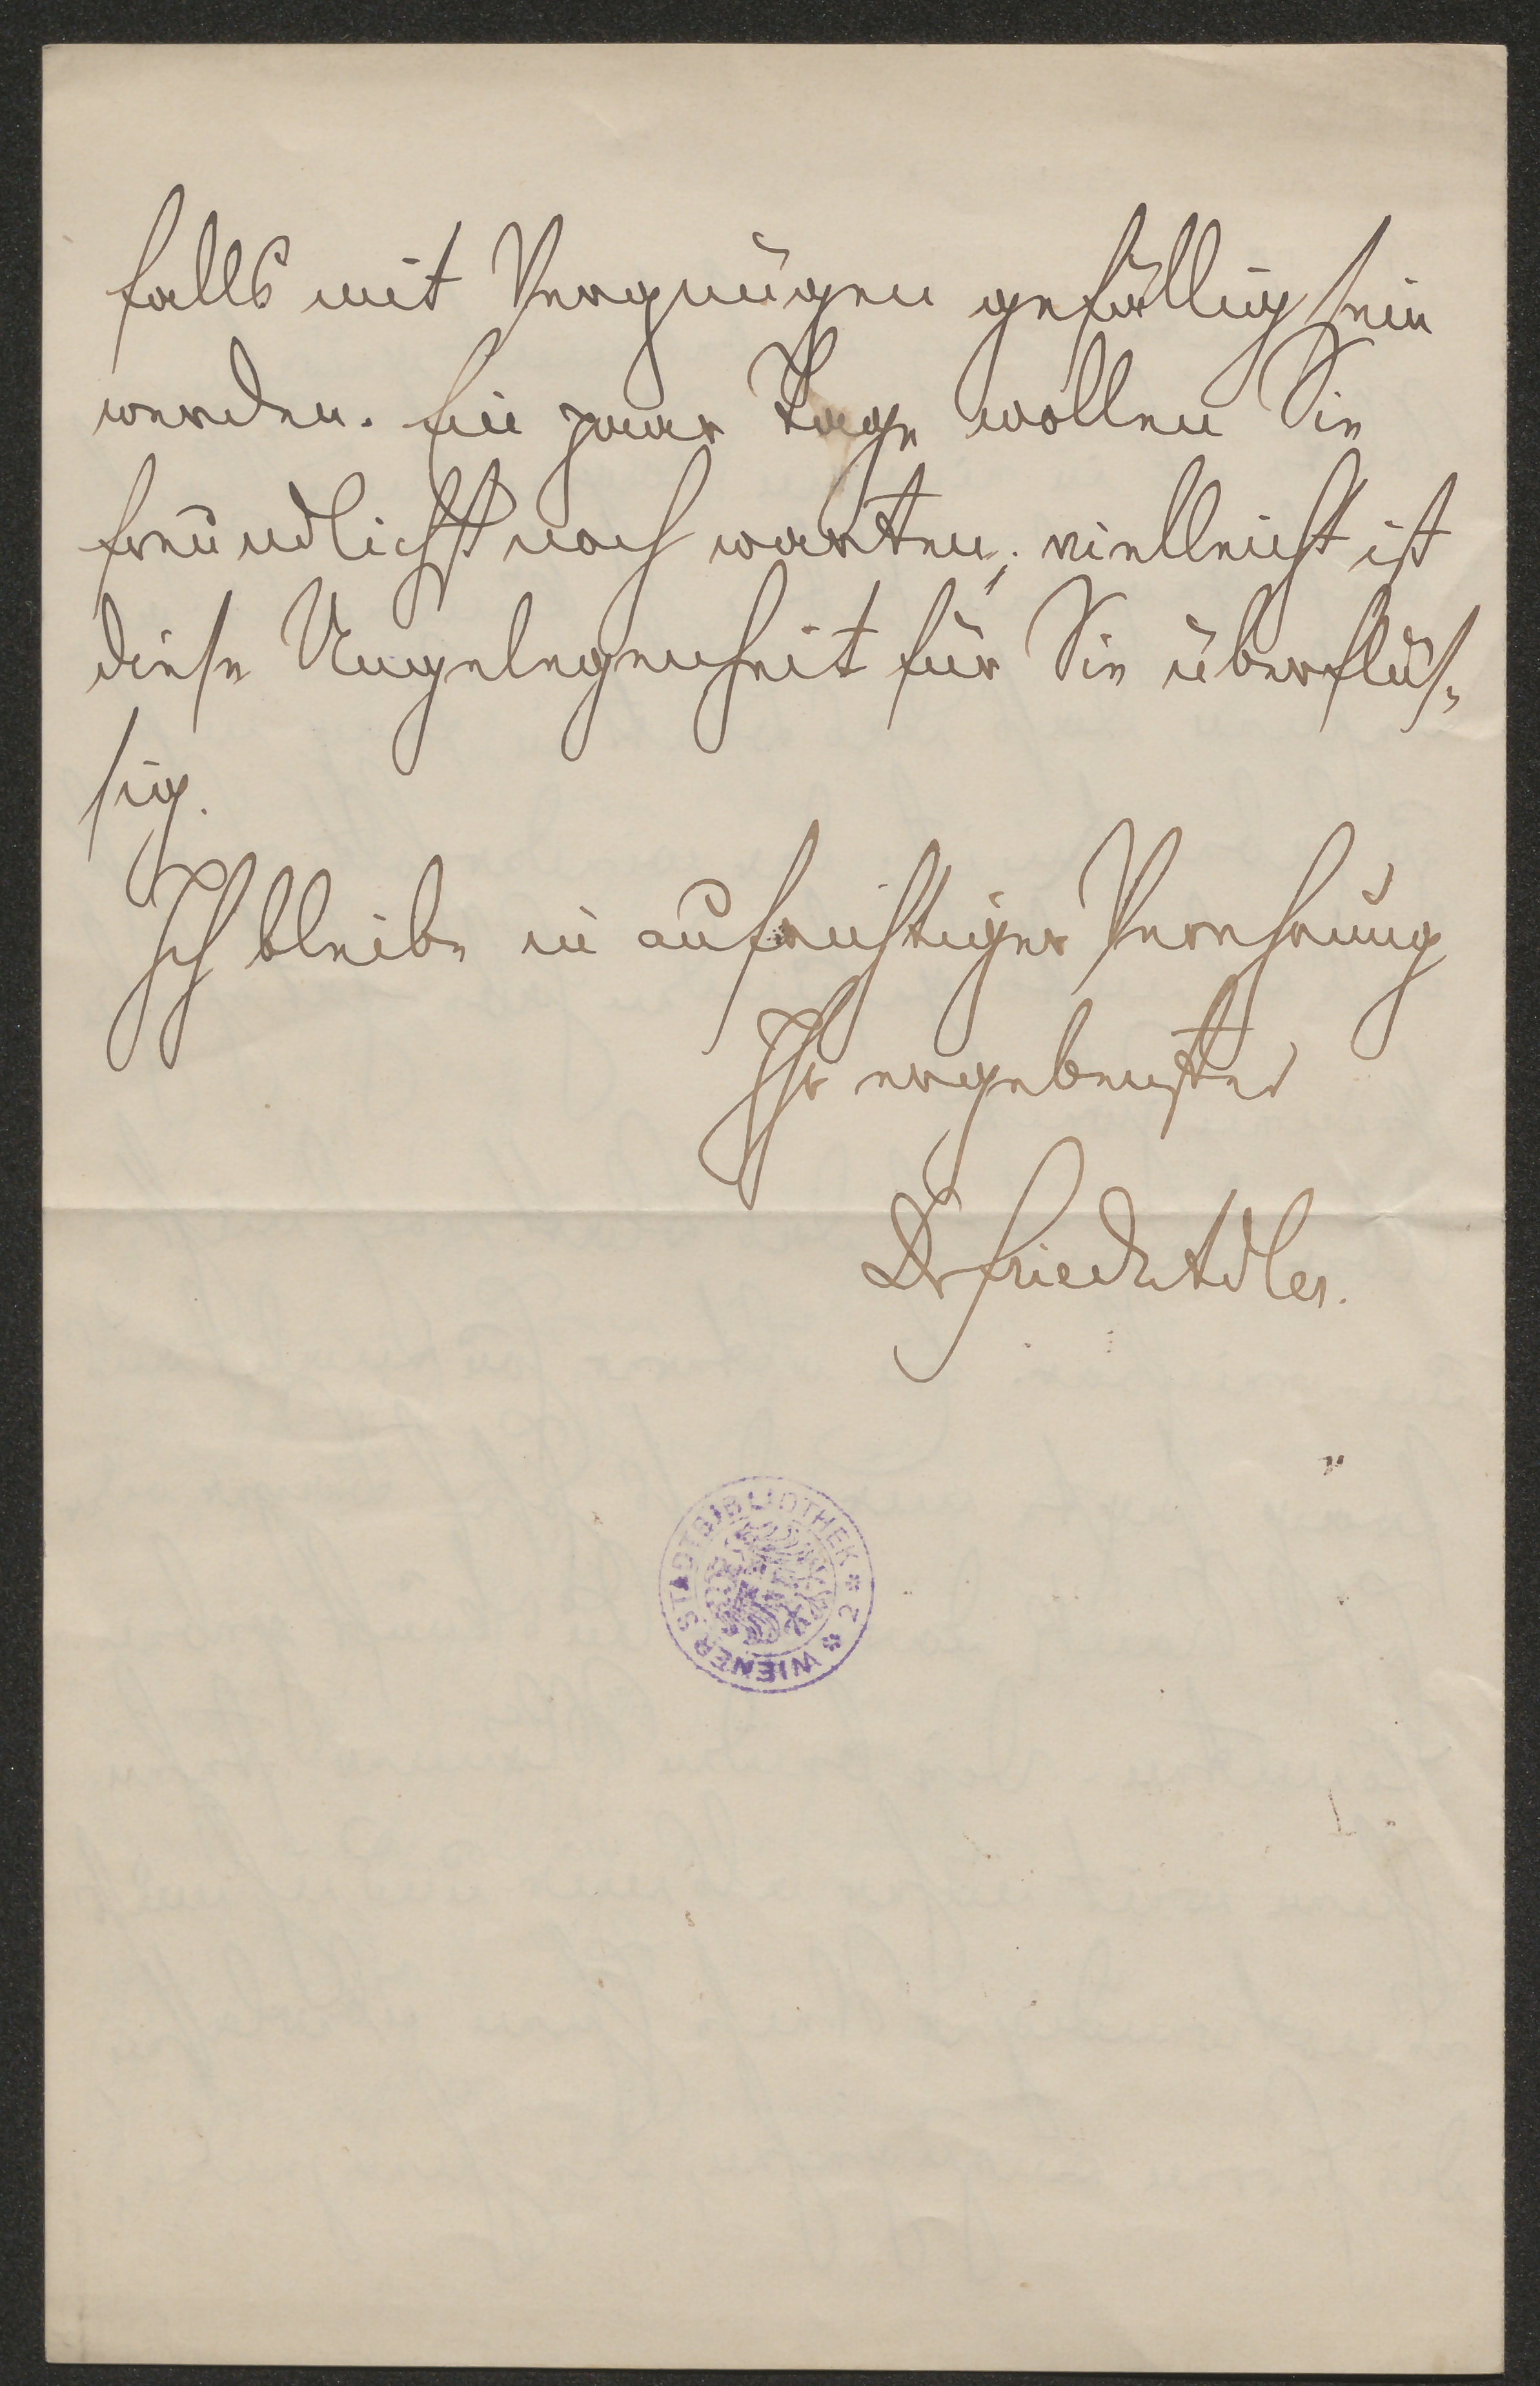 falls mit Vergnügen gefällig sein
werden. Ein paar Tage wollen Sie
freundlichst noch warten; vielleicht ist
diese Angelegenheit für Sie überflüs-
sig.
Ich bleibe in aufrichtiger Verehrung
Ihr ergebenster
Dr Friedr Adler.
WIENER STADTBIBLIOTHEK * 2 *